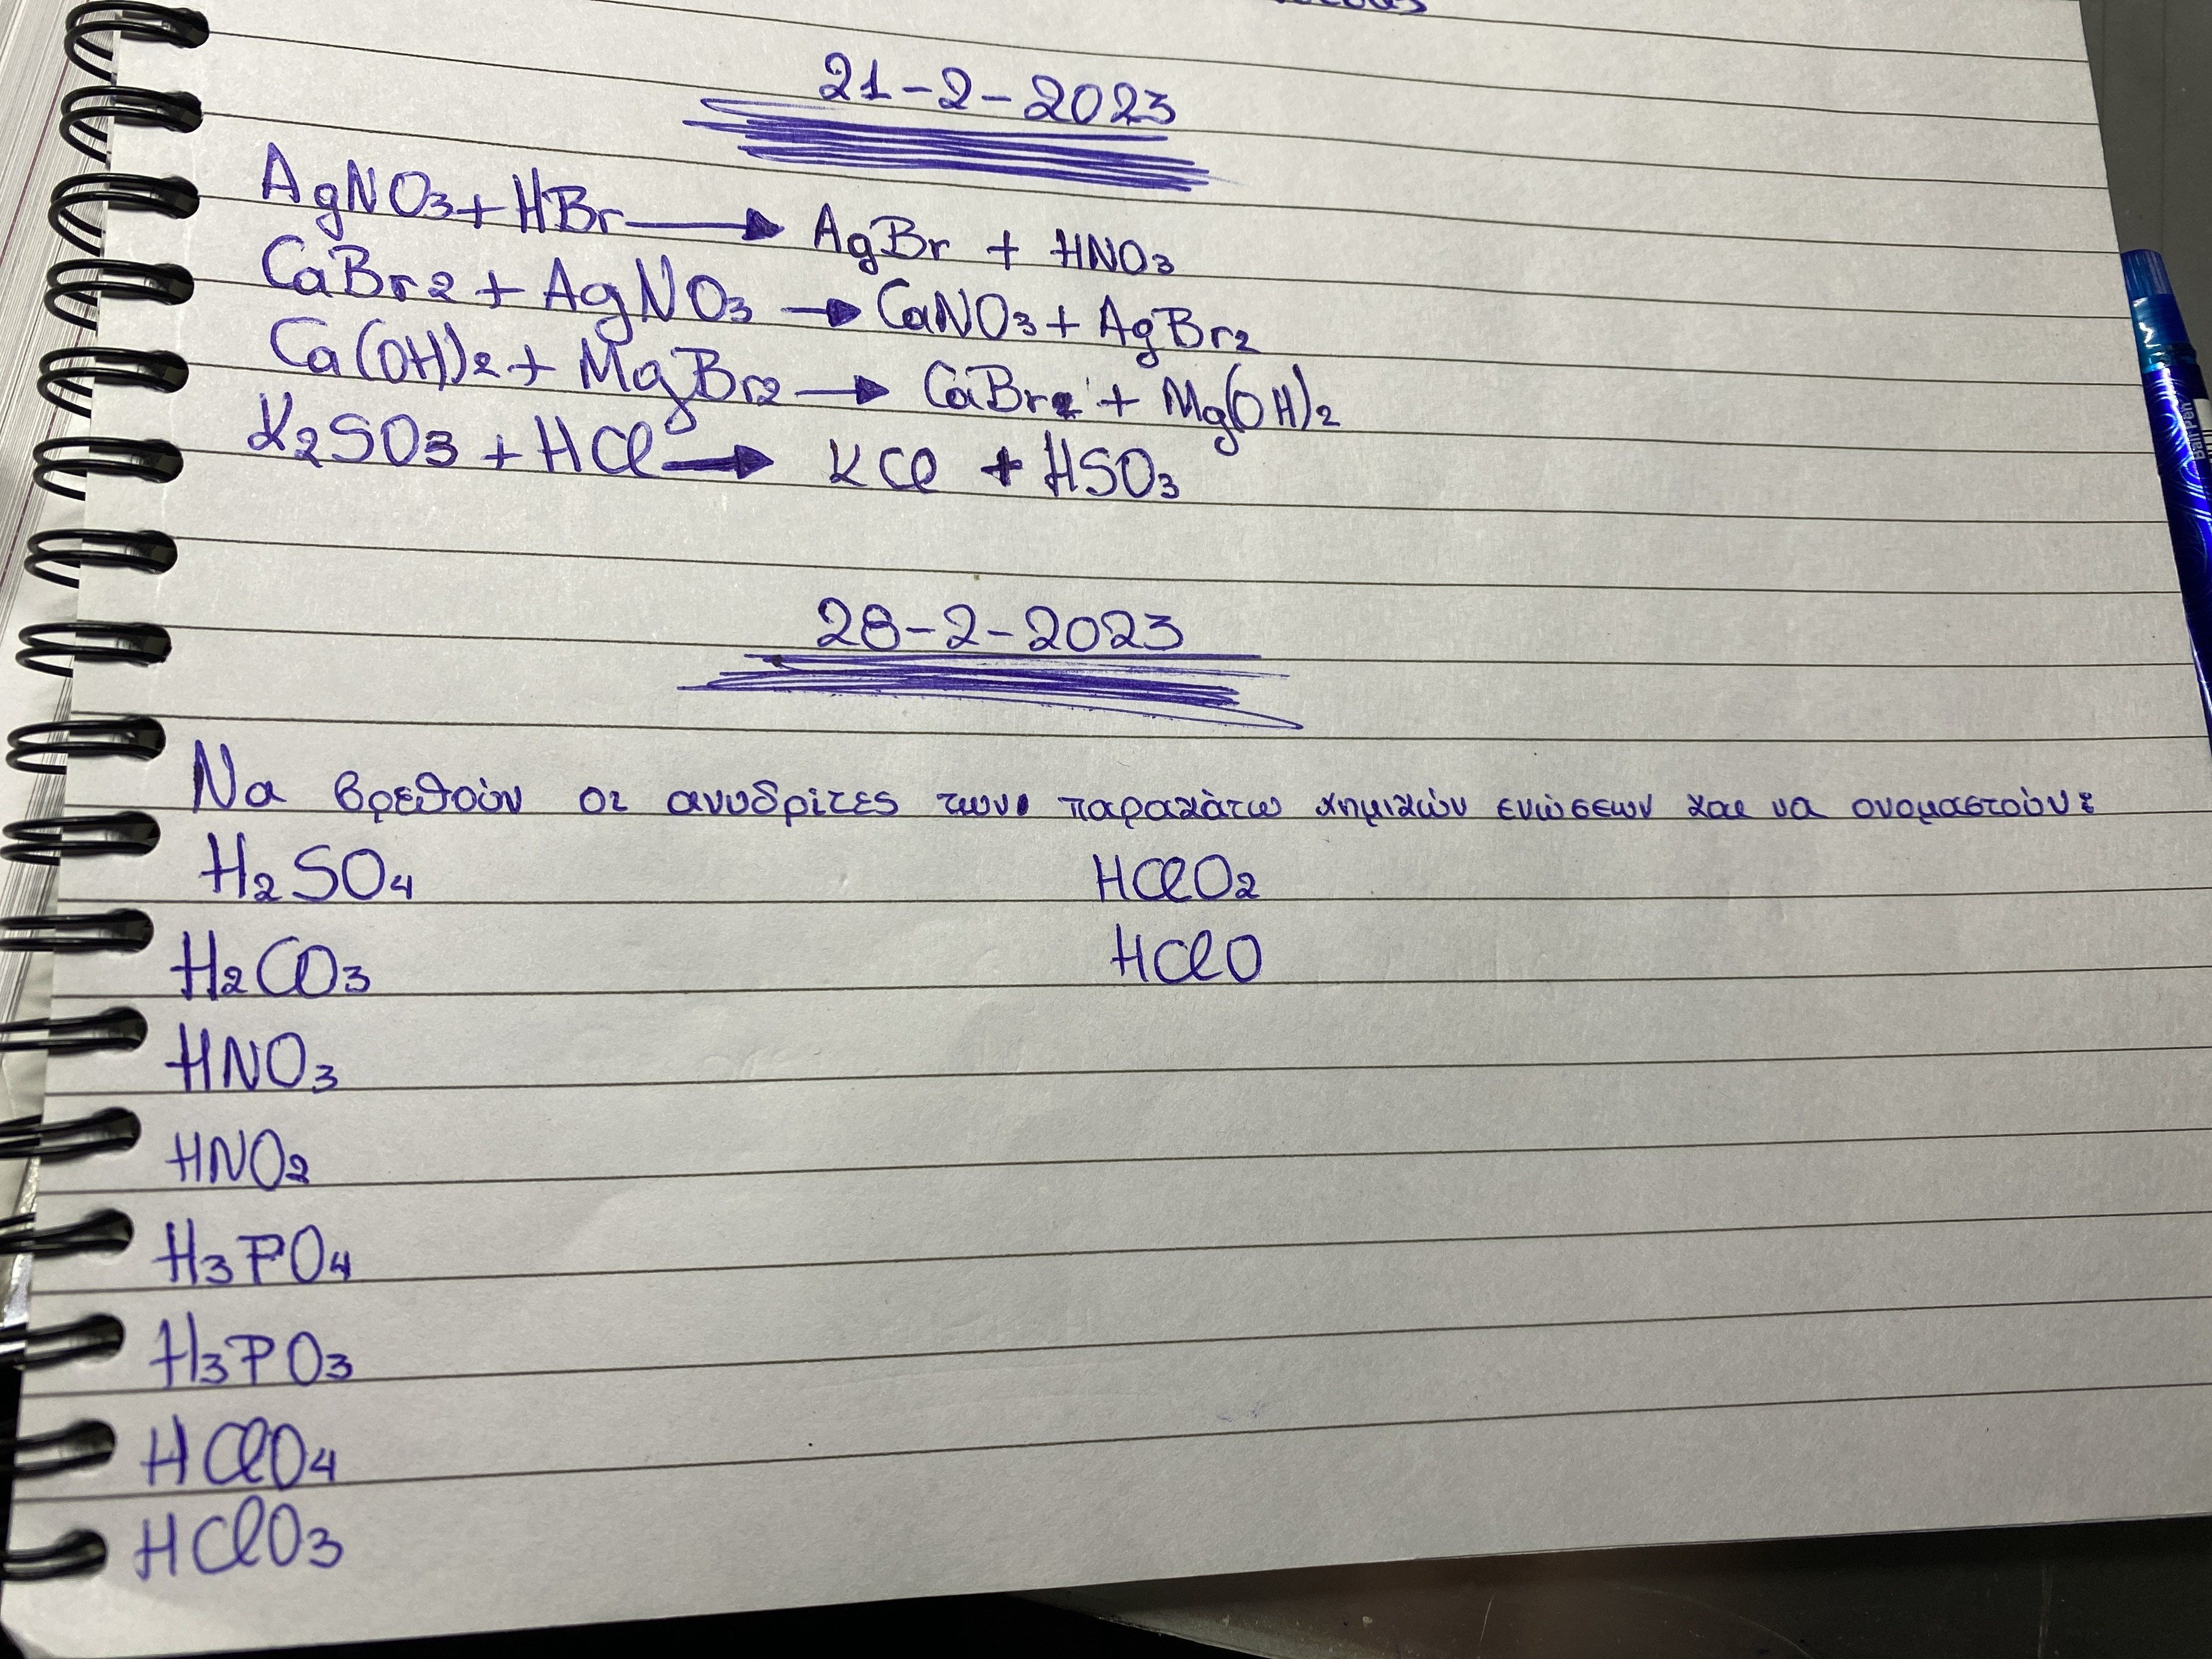 21-2-2023
AgNO3+HBr → AgBr + HNO3
CaBr2 + AgNO3 → CaNO3 + AgBr2
Ca(OH)2 + MgBr2 → CaBr2 + Mg(OH)2
K2SO3 + HCl → KCl + HSO3
28-2-2023
Να βρεθούν οι ανυδρίτες των παρακάτω χημικών ενώσεων και να ονομαστούν:
H2SO4 HClO2
H2CO3 HClO
HNO3
HNO2
H3PO4
H3PO3
HClO4
HClO3
Ball Pen